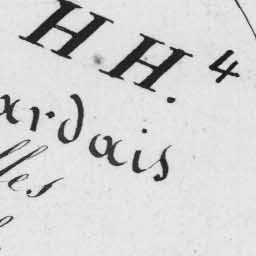 H H. 4
ardais
lles